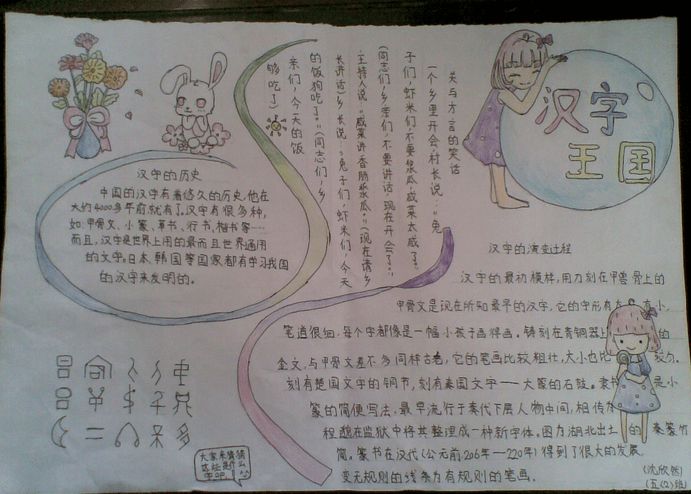 汉字
王国
关与方言的笑话
一个乡里开会,村长说:“兔
子们,虾米们,不要浆瓜,咸菜太咸了。”
(同志们,乡亲们,不要讲话,现在开会了。)
主持人说:“咸菜讲香肠浆瓜。”(现在请乡
长讲话)乡长说:“兔子们,虾米们,今天
的饭狗吃了。”(同志们,乡
亲们,今天的饭
够吃了)
汉字的历史
中国的汉字有着悠久的历史,他在
大约4000多年前就有了,汉字有很多种,
如:甲骨文、小篆、草书、行书、楷书等……
而且,汉字是世界上用的最而且世界通用
的文字。日本、韩国等国家都有学习我国
的汉字来发明的。
汉字的演变过程
汉字的最初模样,用刀刻在甲兽骨上的
甲骨文是现在所知最早的汉字,它的字形有大有小,
笔道很细,每个字都像是一幅小孩子画得画。铸刻在青铜器上的
金文,与甲骨文差不多同样古老,它的笔画比较粗壮,大小也比较匀。
刻有楚国文字的铜节,刻有秦国文字——大篆的石鼓。隶书是小
篆的简便写法,最早流行于秦代下层人物中间,相传
程邈在监狱中将其整理成一种新字体。图为湖北出土的秦篆竹
简。隶书在汉代(公元前206年—220年)得到了很大的发展,
变无规则的线条为有规则的笔画。
大家来猜猜
这些是什么
字吧
(沈欣然)
(五(2)班)